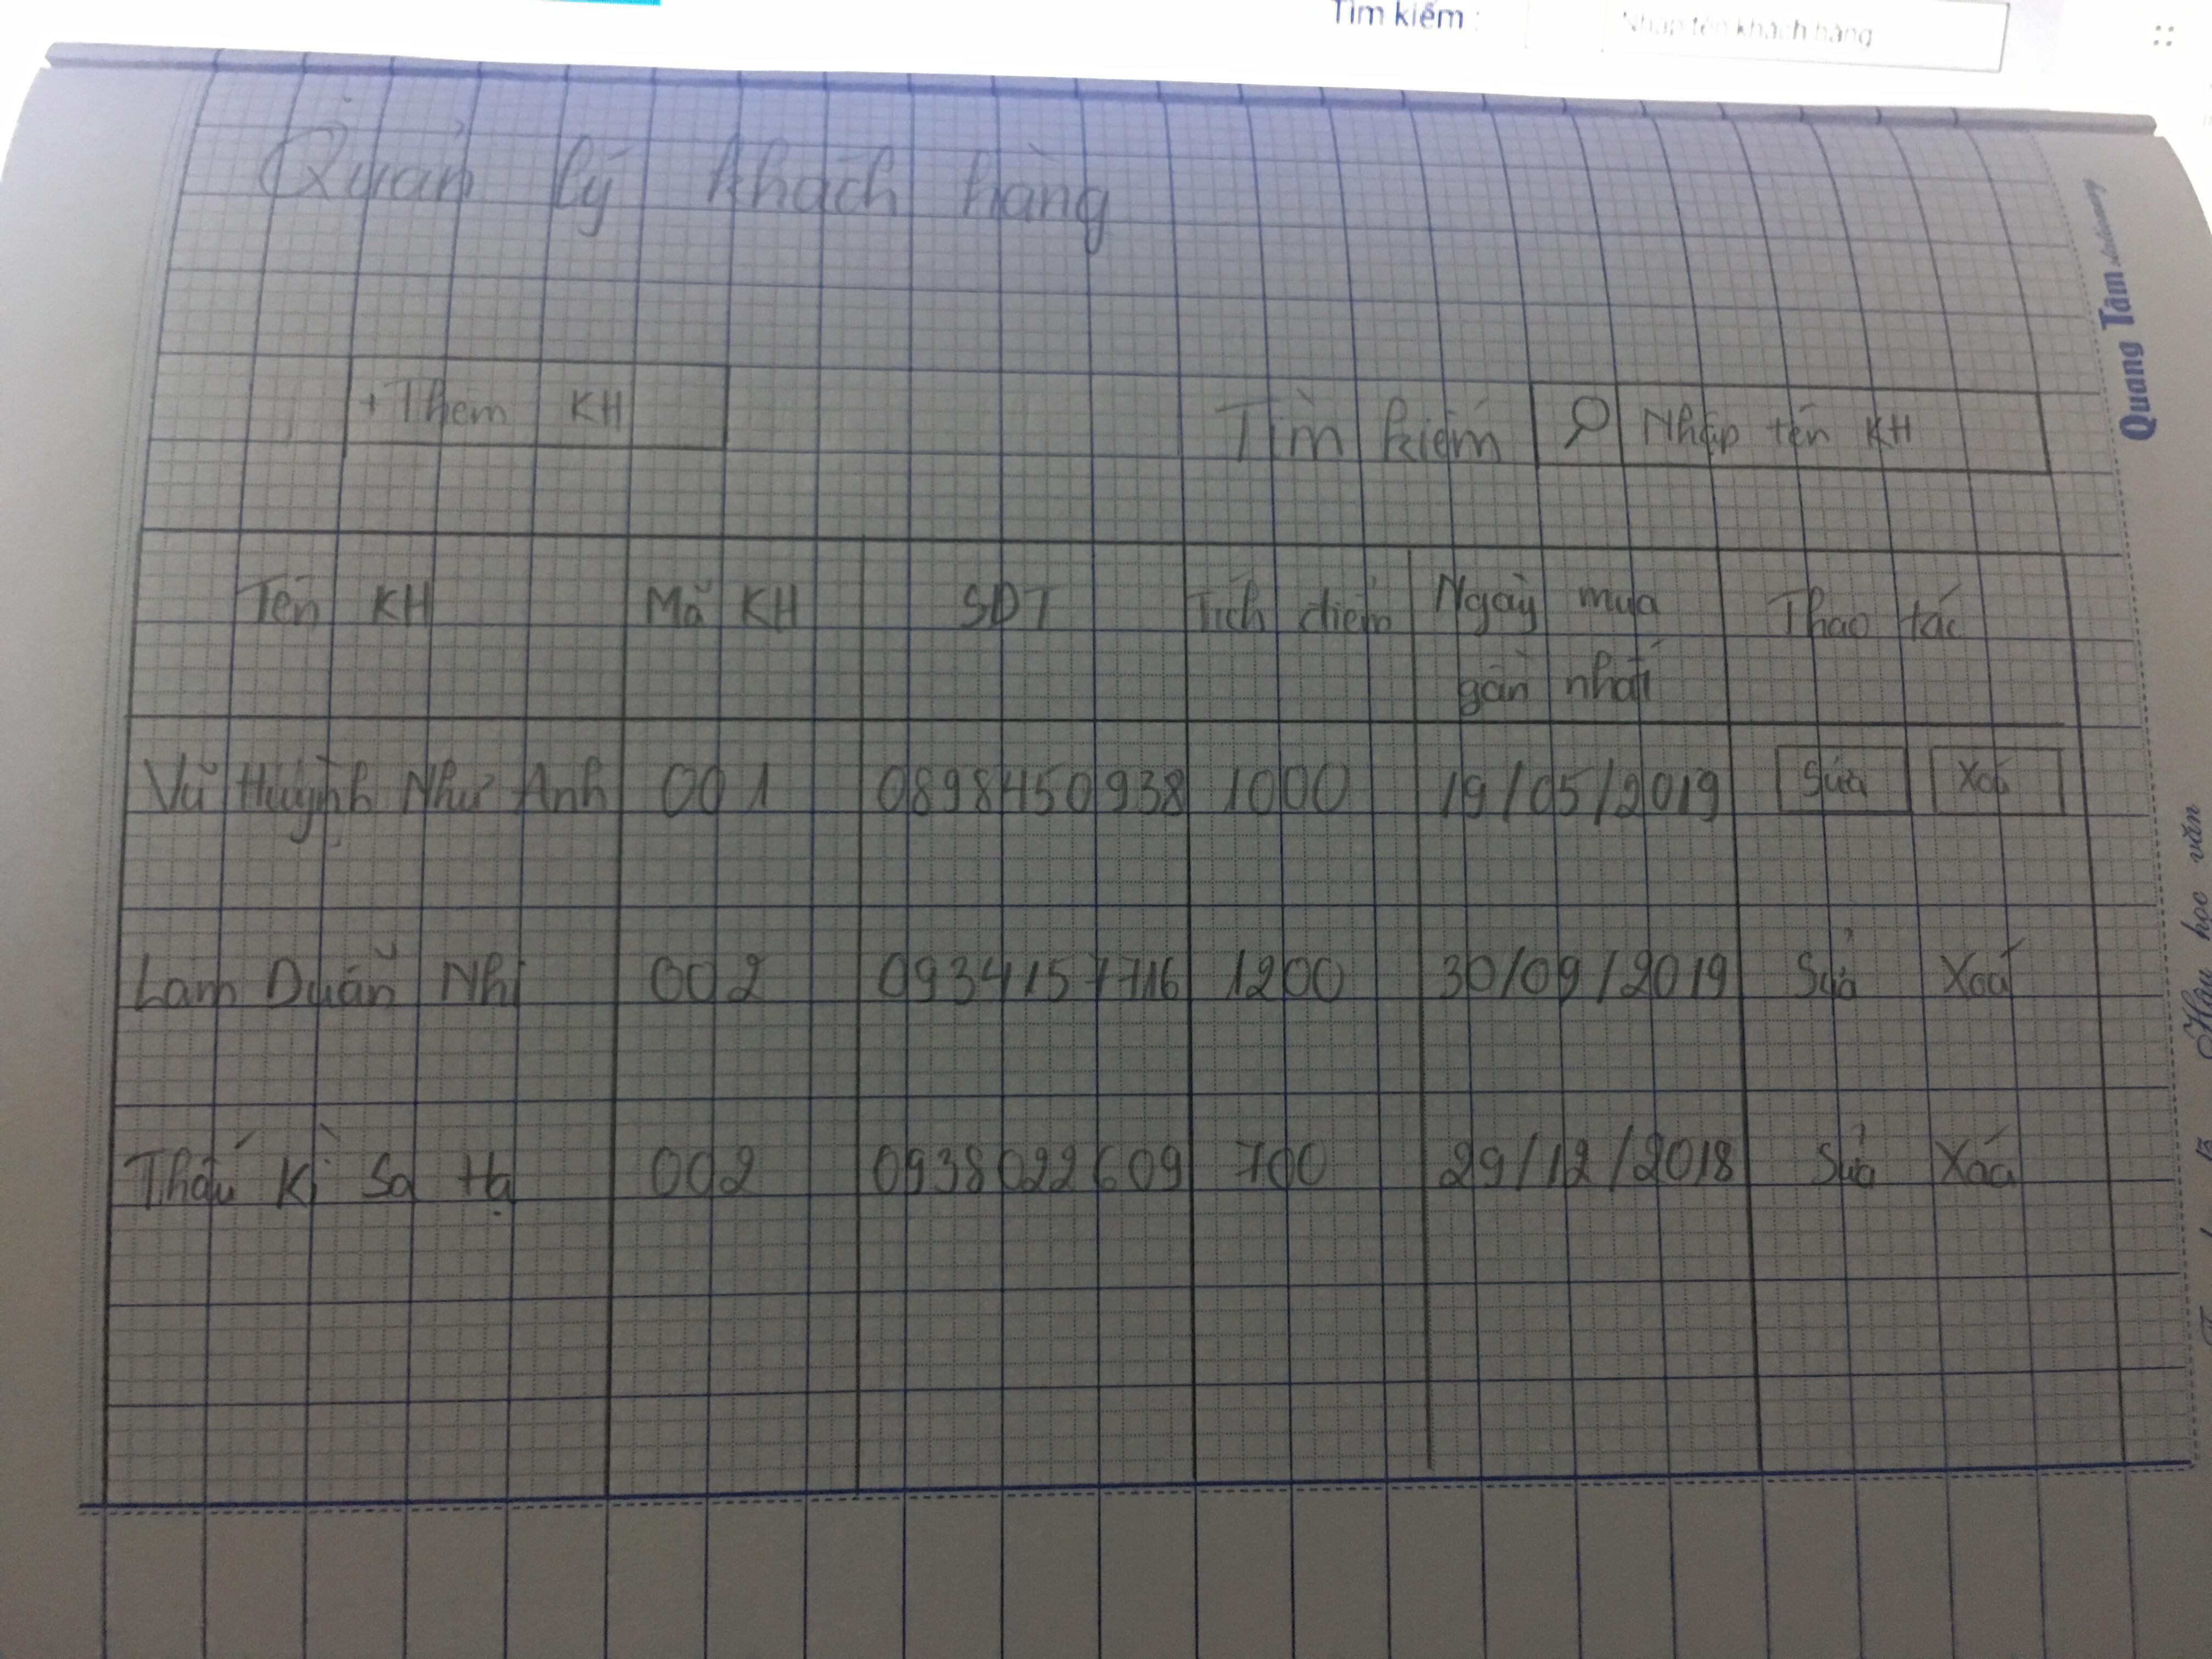 Tìm kiếm :
Nhập tên khách hàng
Quản lý khách hàng
+ Thêm KH
Tìm kiếm Nhập tên KH
Tên KH Mã KH SDT Tích điểm Ngày mua gần nhất Thao tác
Vũ Huỳnh Như Anh 001 0898450938 1000 19/05/2019 Sửa Xoá
Lam Duẩn Nhi 002 0934157716 1200 30/09/2019 Sửa Xoá
Thấu Kì Sa Hạ 002 0938022609 700 29/12/2018 Sửa Xoá
Quang Tâm
stationery
học văn